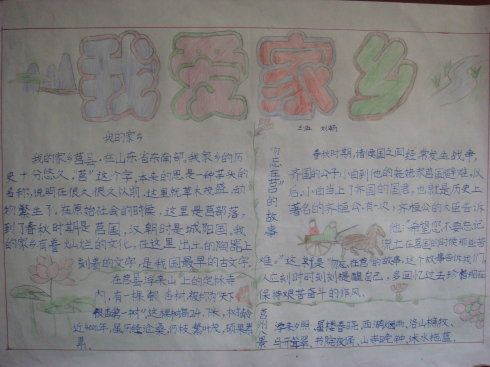 我爱家乡
五班 刘畅
我的家乡
我的家乡莒县,在山东省东南部,我家乡的历
史十分悠久,"莒"这个字,本来的意思是一种草头的
名称,说明在很久很久以前,这里就草木茂盛,动
物繁生了,在原始社会的时候,这里是莒部落,
到了春秋时期是莒国,汉朝时是城阳国,我
的家乡有着灿烂的文化,在这里出土的陶器上
刻着的文字,是我国最早的古文字。
在莒县浮来山上的定林寺
内,有一棵银杏树被称为"天下
银杏第一树"这棵树高24.7米,树龄
近4000年,虽历经沧桑,仍枝繁叶茂,硕果累
累
"勿忘在莒"的故事
春秋时期,诸侯国之间经常发生战争,
齐国的公子小白到他的姥姥家莒国避难,以
后,小白当上了齐国的国君,也就是历史上
著名的齐桓公,有一次,齐桓公的大臣告诉
他:"希望您不要忘记
流亡在莒国的时候那些苦
难。"这就是"勿忘在莒"的故事,这个故事告诉我们,
人应时时刻刻提醒自己,多回忆过去,珍惜现在
保持艰苦奋斗的作风。
莒州八景
浮来夕照、屋楼春晓、西湖烟雨、洛山樵牧、
马子耸翠、书院夜诵、山寺晓钟、沭水拖蓝